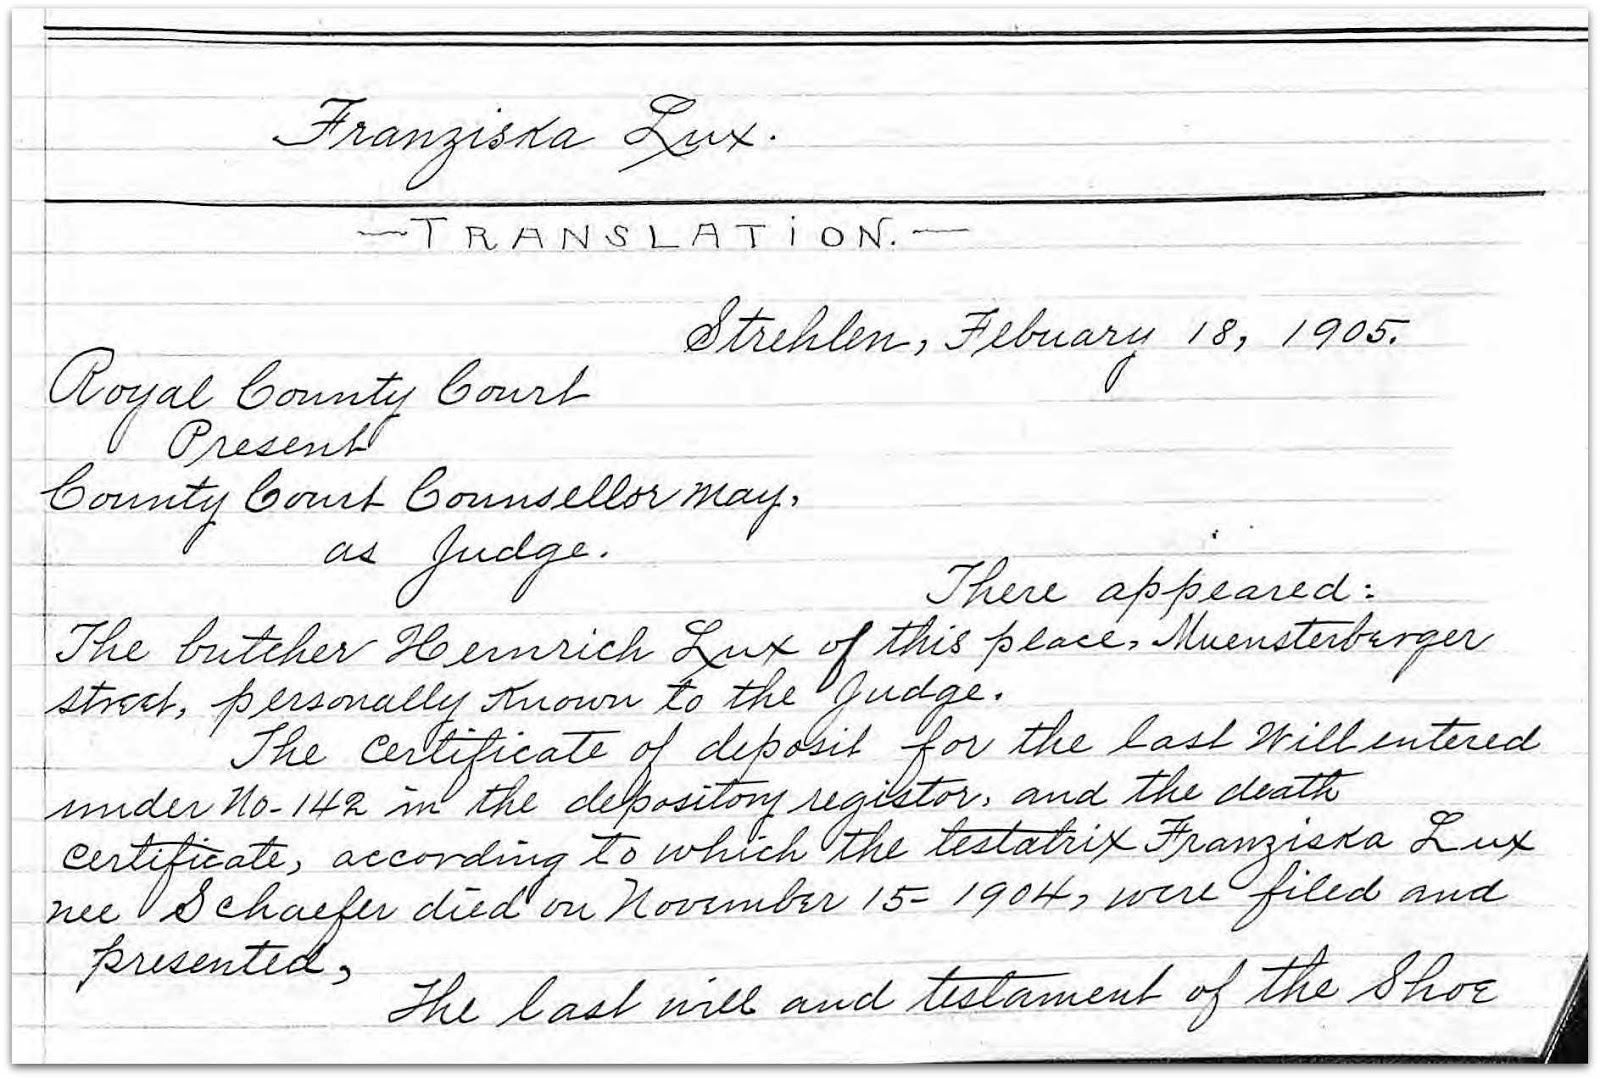 Franziska Lux.
—TRANSLATiON.—
Strehlen, Febuary 18, 1905.
Royal County Court
Present
County Court Counsellor May,
as Judge.
There appeared:
The butcher Heinrich Lux of this place, Muensterberger
street, personally known to the Judge.
The certificate of deposit for the last Will entered
under No- 142 in the depository registor, and the death
certificate, according to which the testatrix Franziska Lux
nee Schaefer died on November 15- 1904, were filed and
presented,
The last will and testament of the Shoe